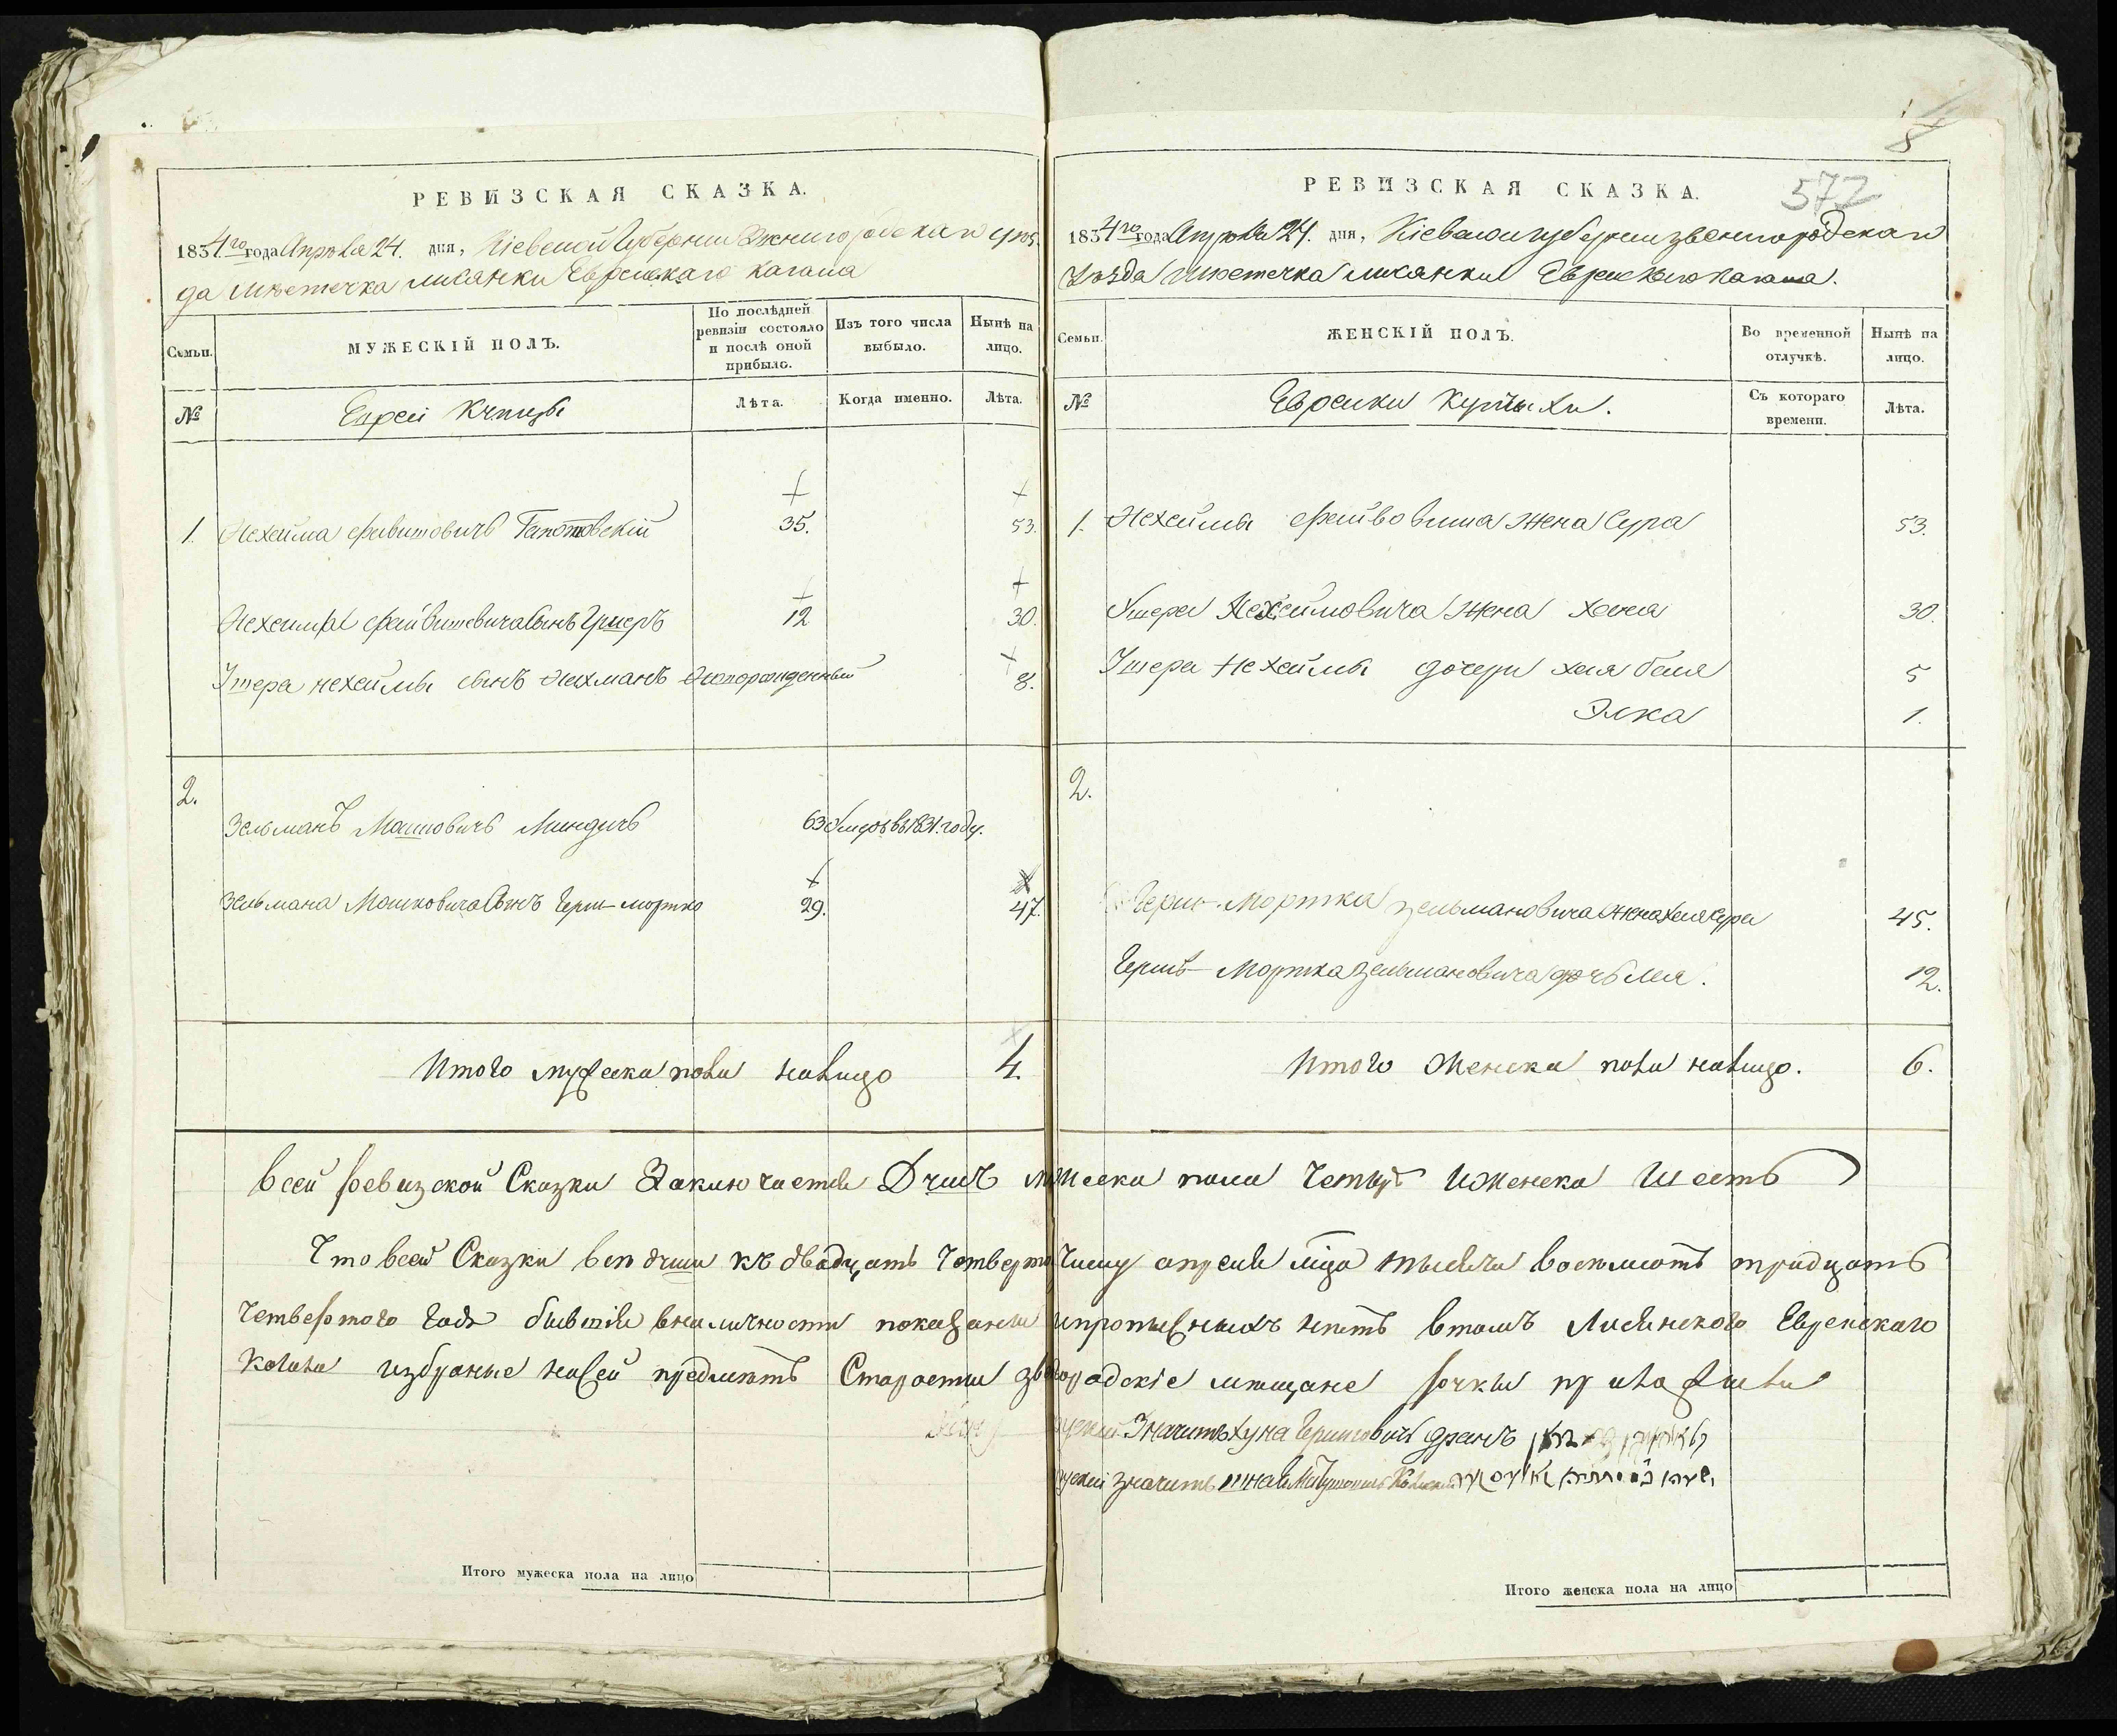 РЕВИЗСКАЯ СКАЗКА.
1834го года Апреля 24. дня, Кіевской Губерніи Звенигородскаго уѣз
да Мѣстечка Лисянки Еврейскаго Кагала
Семьи.
МУЖЕСКІЙ ПОЛЪ.
По послѣдней ревизіи состояло и послѣ оной прибыло.
Изъ того числа выбыло.
Нынѣ на лицо.
№
Евреи Купцы
Лѣта.
Когда именно.
Лѣта.
1. Нехейма Файвишовичъ 35. 53.
Нехеймы Файвишевича Сынъ Ушеръ 12 30.
Ушера Нехеймы сынъ Нахманъ Новорожденный 8.
2.
Зельманъ Мошковичъ Миндичъ 63 Умеръ въ 1831. году.
Зельмана Мошковича Сынъ Герш-Мортко 29. 47.
Итого мужеска пола налицо 4.
Итого мужеска пола на лицо
8
572
РЕВИЗСКАЯ СКАЗКА.
1834го года Апреля 24. дня, Кіевской губерніи Звенигородскаго
Уѣзда Мѣстечка Лисянки Еврейскаго Кагала.
Семьи.
ЖЕНСКІЙ ПОЛЪ.
Во временной отлучкѣ.
Нынѣ на лицо.
№
Еврейки Купчыхи.
Съ котораго времени.
Лѣта.
1. Нехеймы Файвовиша Жена Сура 53.
Ушера Нехеймовича Жена Хана 30.
Ушера Нехеймы дочери Хая Бася 5
Элка 1.
2.
Герш-Мортка Зельмановича Жена Хая Сура 45.
Гершъ-Мортка Зельмановича дочь Лея. 12.
Итого Женска пола налицо. 6.
Всей Ревизской Сказки Заключается Душъ мужеска пола Четыре И Женска Шесть
Что всей Сказки все души къ двадцать Четверто Числу апреля мца тысяча восемьсотъ тридцать
Четвертого Года бывшія вналичности показаны ипрописныхъ нѣтъ втомъ Лисянского Еврейского
Кагала избраные на сей предметъ Старосты Звенигородскіе мещане ручки приложили
Значитъ Хуна Гершковичъ
значитъ
Итого женска пола на лицо